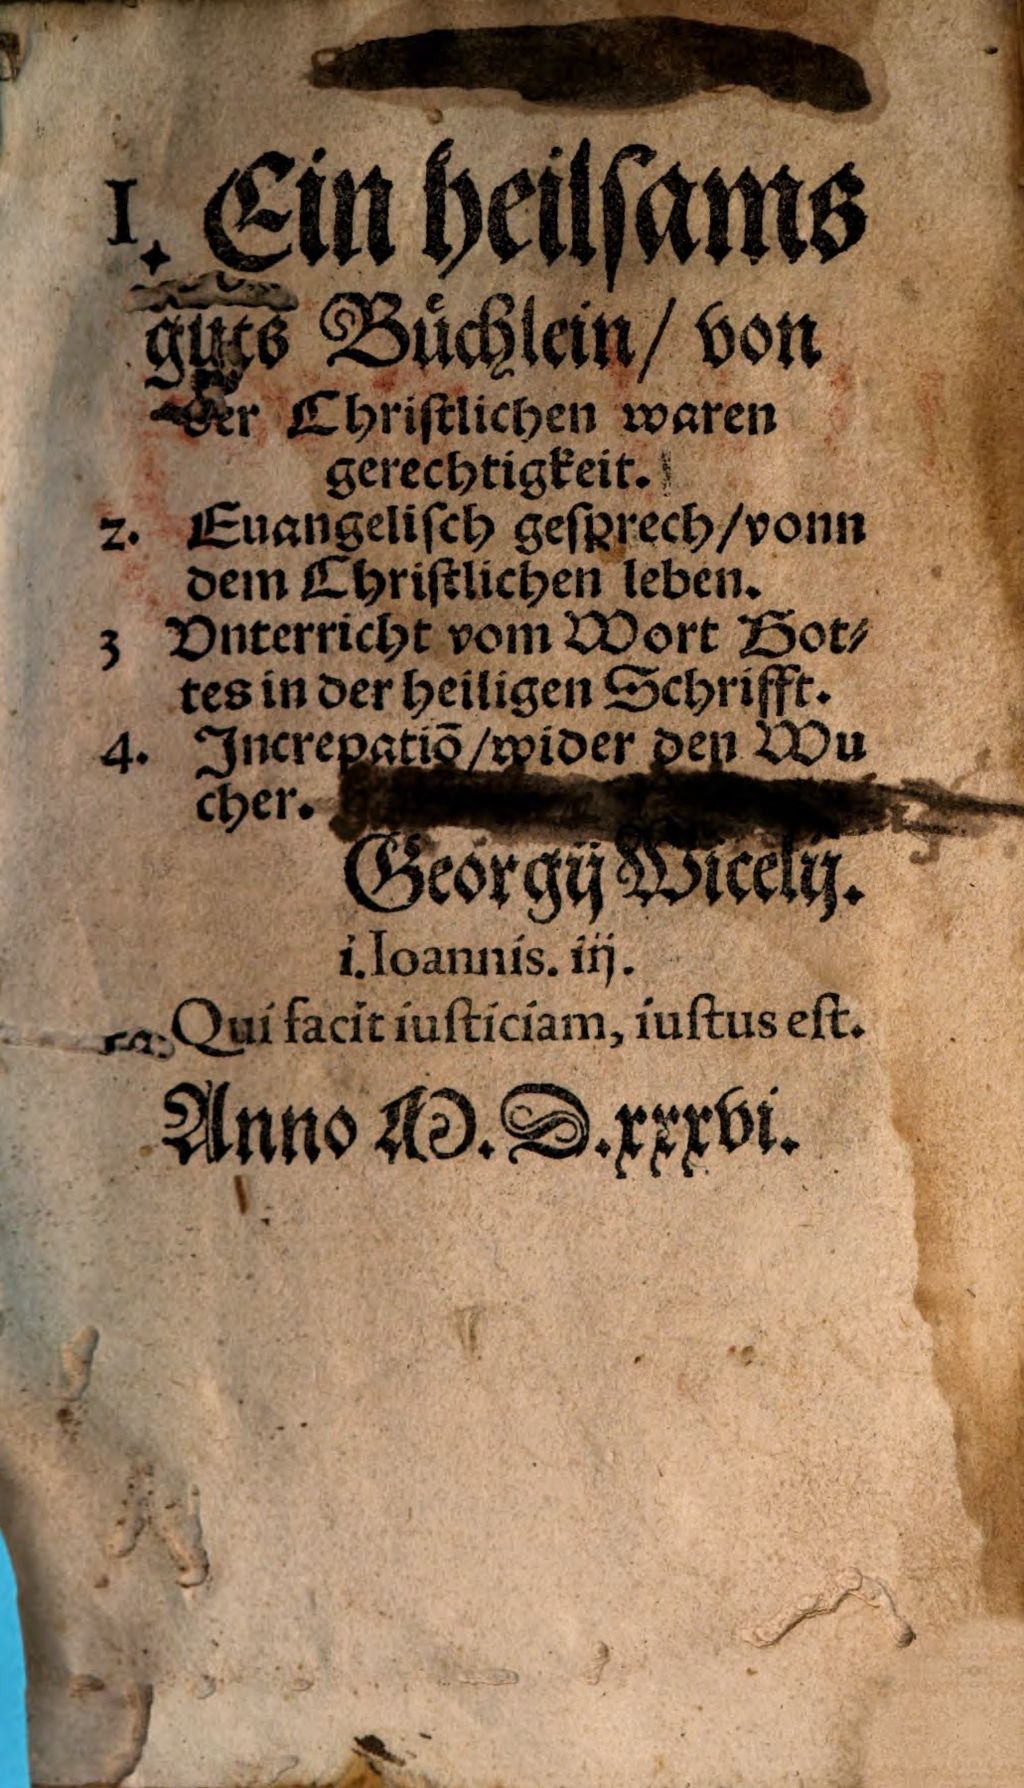 1. Ein heilſams
guts Bůchlein/ von
der Chriſtlichen waren
gerechtigkeit.
2. Euangeliſch geſprech/vonn
dem Chriſtlichen leben.
3 Vnterricht vom Wort Got⸗
tes in der heiligen Schrifft.
4. Increpatiō/wider den Wu
cher.
Georgij Wicelij.
i. Ioannis. iij.
Qui facit iuſticiam, iuſtus eſt.
Anno M. D. xxxvi.